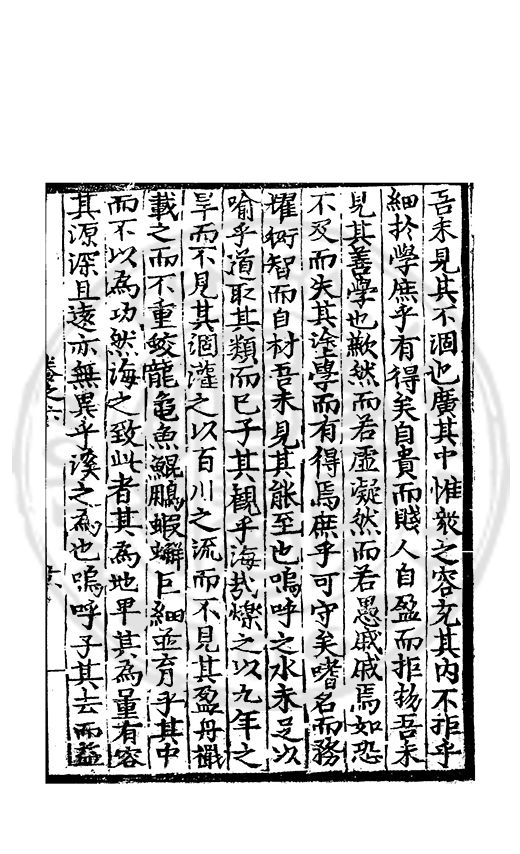 吾未見其不涸也廣其中惟㲄之容充其内不拒乎
細扵學庶乎有得矣自貴而賤人自盈而拒物吾未
見其善學也歉然而若虚凝然而若愚戚戚焉如恐
不及而失其塗學而有得焉庶乎可守矣嗜名而務
耀衒智而自材吾未見其能至也嗚呼之水未足以
喻乎道取其類而已子其觀乎海㢤爍之以九年之
旱而不見其涸灌之以百川之流而不見其盈舟檝
載之而不重蛟龍龜魚鯤鵬蝦蠏巨細並育乎其中
而不以為功然海之致此者其為地卑其為量有容
其源深且遠亦無異乎溪之為也嗚呼子其去而益
卷之六